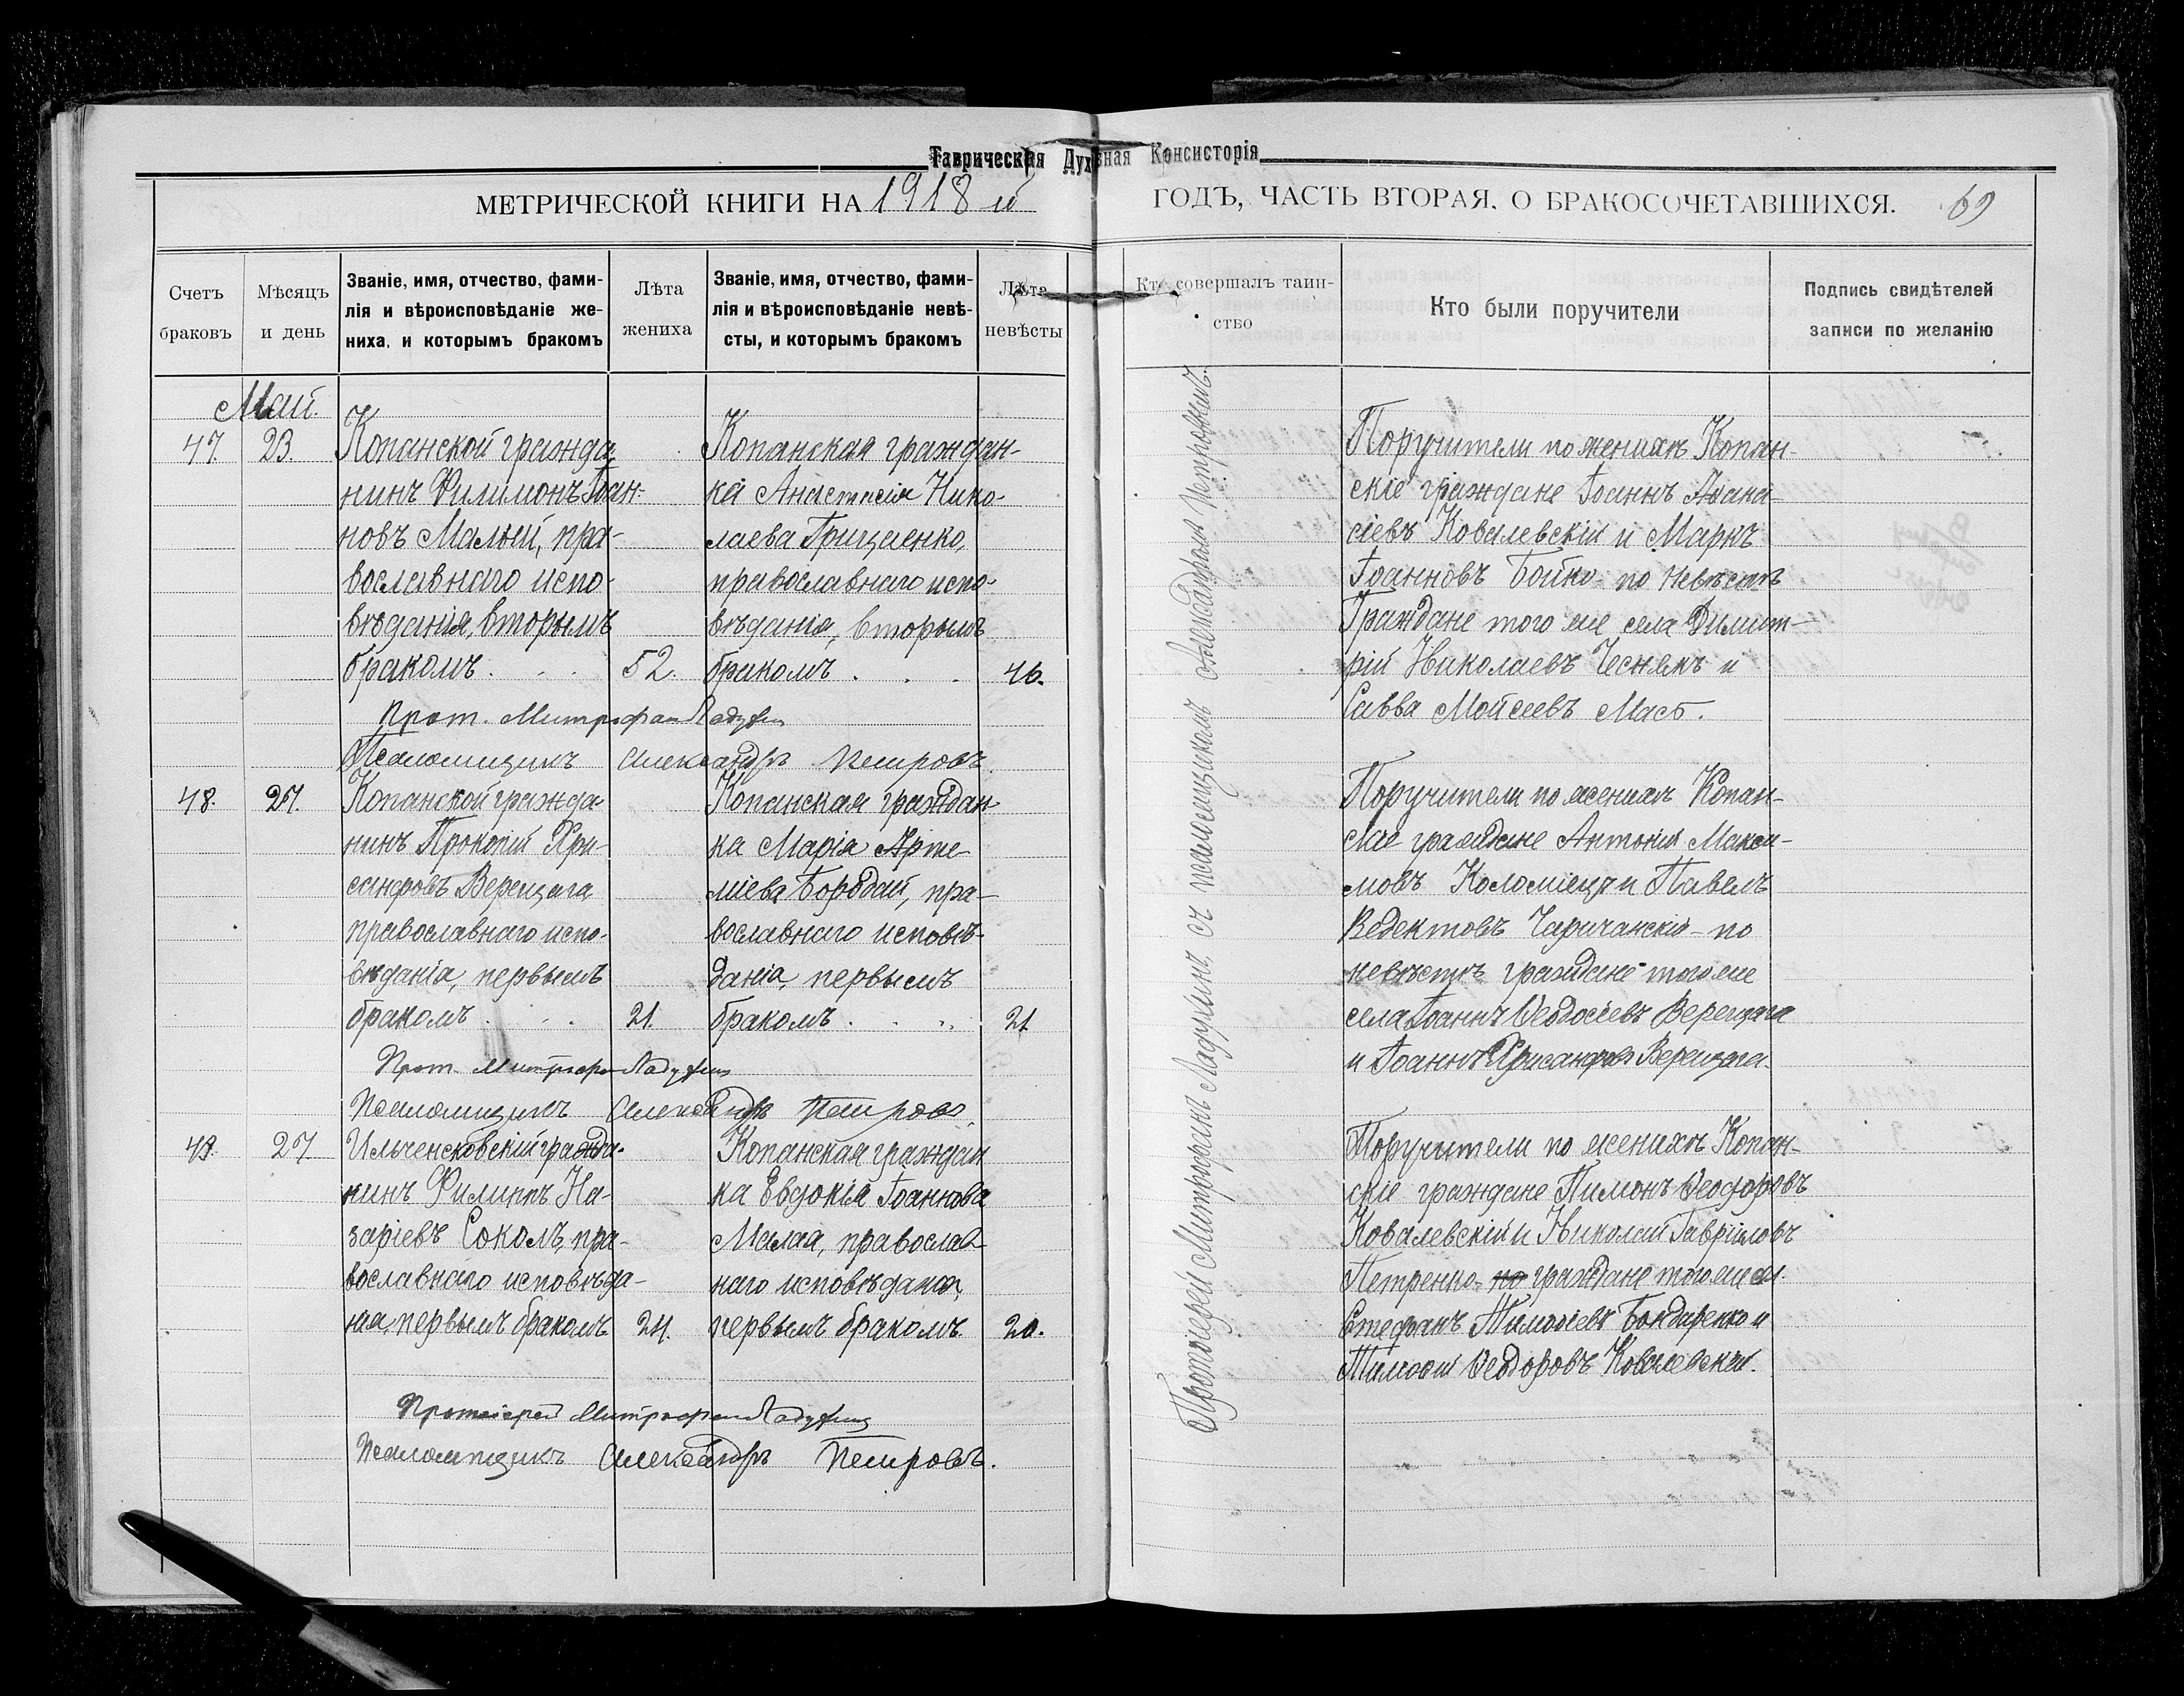 Таврическая Духовная Консисторія
МЕТРИЧЕСКОЙ КНИГИ НА 1918 й ГОДЪ, ЧАСТЬ ВТОРАЯ, О БРАКОСОЧЕТАВШИХСЯ. 69
Счетъ браковъ
Мѣсяцъ и день
Званіе, имя, отчество, фами-
лія и вѣроисповѣданіе же-
ниха, и которымъ бракомъ
Лѣта жениха
Званіе, имя, отчество, фами-
лія и вѣроисповѣданіе невѣ-
сты, и которымъ бракомъ
Лѣта невѣсты
Кто совершалъ таин-
ство
Кто были поручители
Подпись свидѣтелей
записи по желанію
Май.
47. 23.
Копанской гражда
нинъ Филимонъ Іоан-
новъ Малый, пра-
вославнаго испо-
вѣданія, вторымъ
бракомъ . . . 52.
Копанская граждан-
ка Анастасія Нико-
лаева Грищенко,
православнаго испо-
вѣданія, вторымъ
бракомъ . . . 46.
Поручители по женихѣ Копан-
скіе граждане Іоаннъ Аѳана-
сіевъ Ковалевскій и Маркъ
Іоанновъ Бойко - по невѣстѣ
Граждане того же села Димит-
рій Николаевъ Чеснякъ и
Савва Мойсеевъ
Прот. Митрофан Ладухин
Псаломщикъ Александръ Петровъ.
48. 27.
Копанской гражда-
нинъ Прокопій Хри-
санфовъ Верещага
православнаго испо-
вѣданія, первымъ
бракомъ . . . 21.
Копанская граждан
ка Марія Арте-
міева Бордай, пра-
вославнаго исповѣ-
данія, первымъ
бракомъ . . . 21
Поручители по женихѣ Копан-
скіе граждане Антоній Макси-
мовъ Коломіецъ и Павелъ
Чаричанскій - по
невѣстѣ граждане того же
села Іоаннъ Ѳеодосіевъ Верещага
и Іоаннъ Хрисанфовъ Верещага.
Прот. Митрофан Ладухин
Псаломщикъ Александръ Петровъ.
49. 27
Ильченсковскій гражда-
нинъ Филиппъ На-
заріевъ Соколъ, пра-
вославнаго исповѣда-
нія, первымъ бракомъ 24.
Копанская граждан
ка Евдокія Іоаннова
Малая, православ-
наго исповѣданія,
первымъ бракомъ 20.
Поручители по женихѣ Копан-
скіе граждане Пимонъ Ѳеодоровъ
Ковалевскій и Николай Гавріиловъ
Петренко - по граждане того же с.
Стефанъ Тимоѳіевъ Бондаренко и
Тимоѳій Ѳеодоровъ Ковалевскій.
Протоіерей Митрофан Ладухин
Псаломщикъ Александръ Петровъ.
Протоіерей Митрофанъ Ладухинъ, съ псаломщикомъ Александромъ Петровымъ.